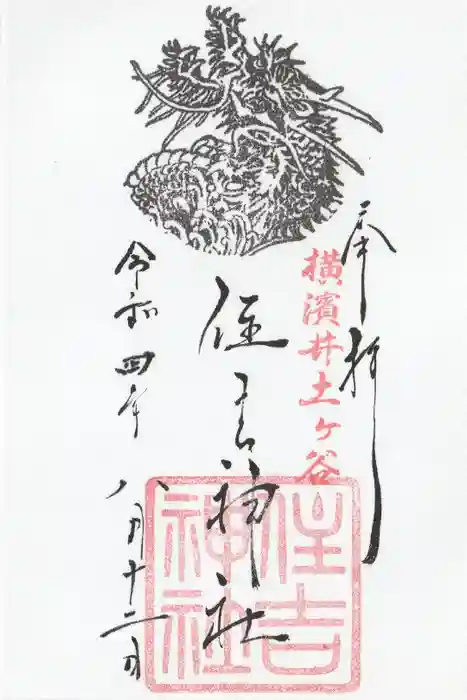 奉拝
横濱井土ヶ谷
住吉神社
住吉神社
令和四年八月十二日